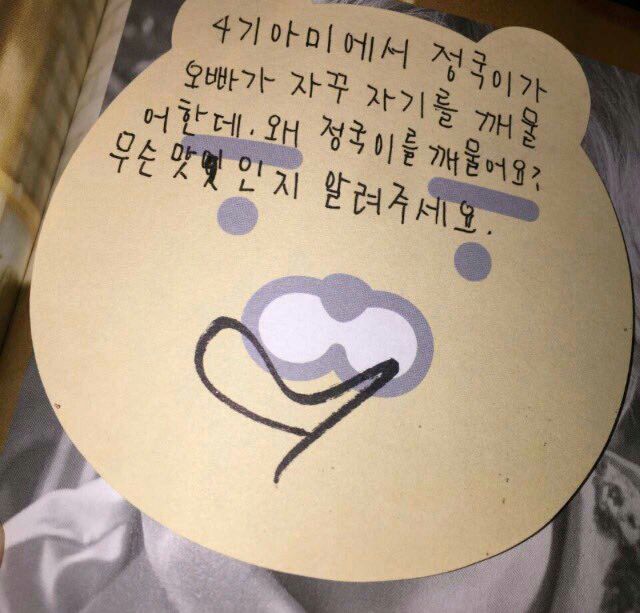 4기아미에서 정국이가
오빠가 자꾸 자기를 깨물
어한데. 왜 정국이를 깨물어요?
무슨 맛인지 알려주세요.